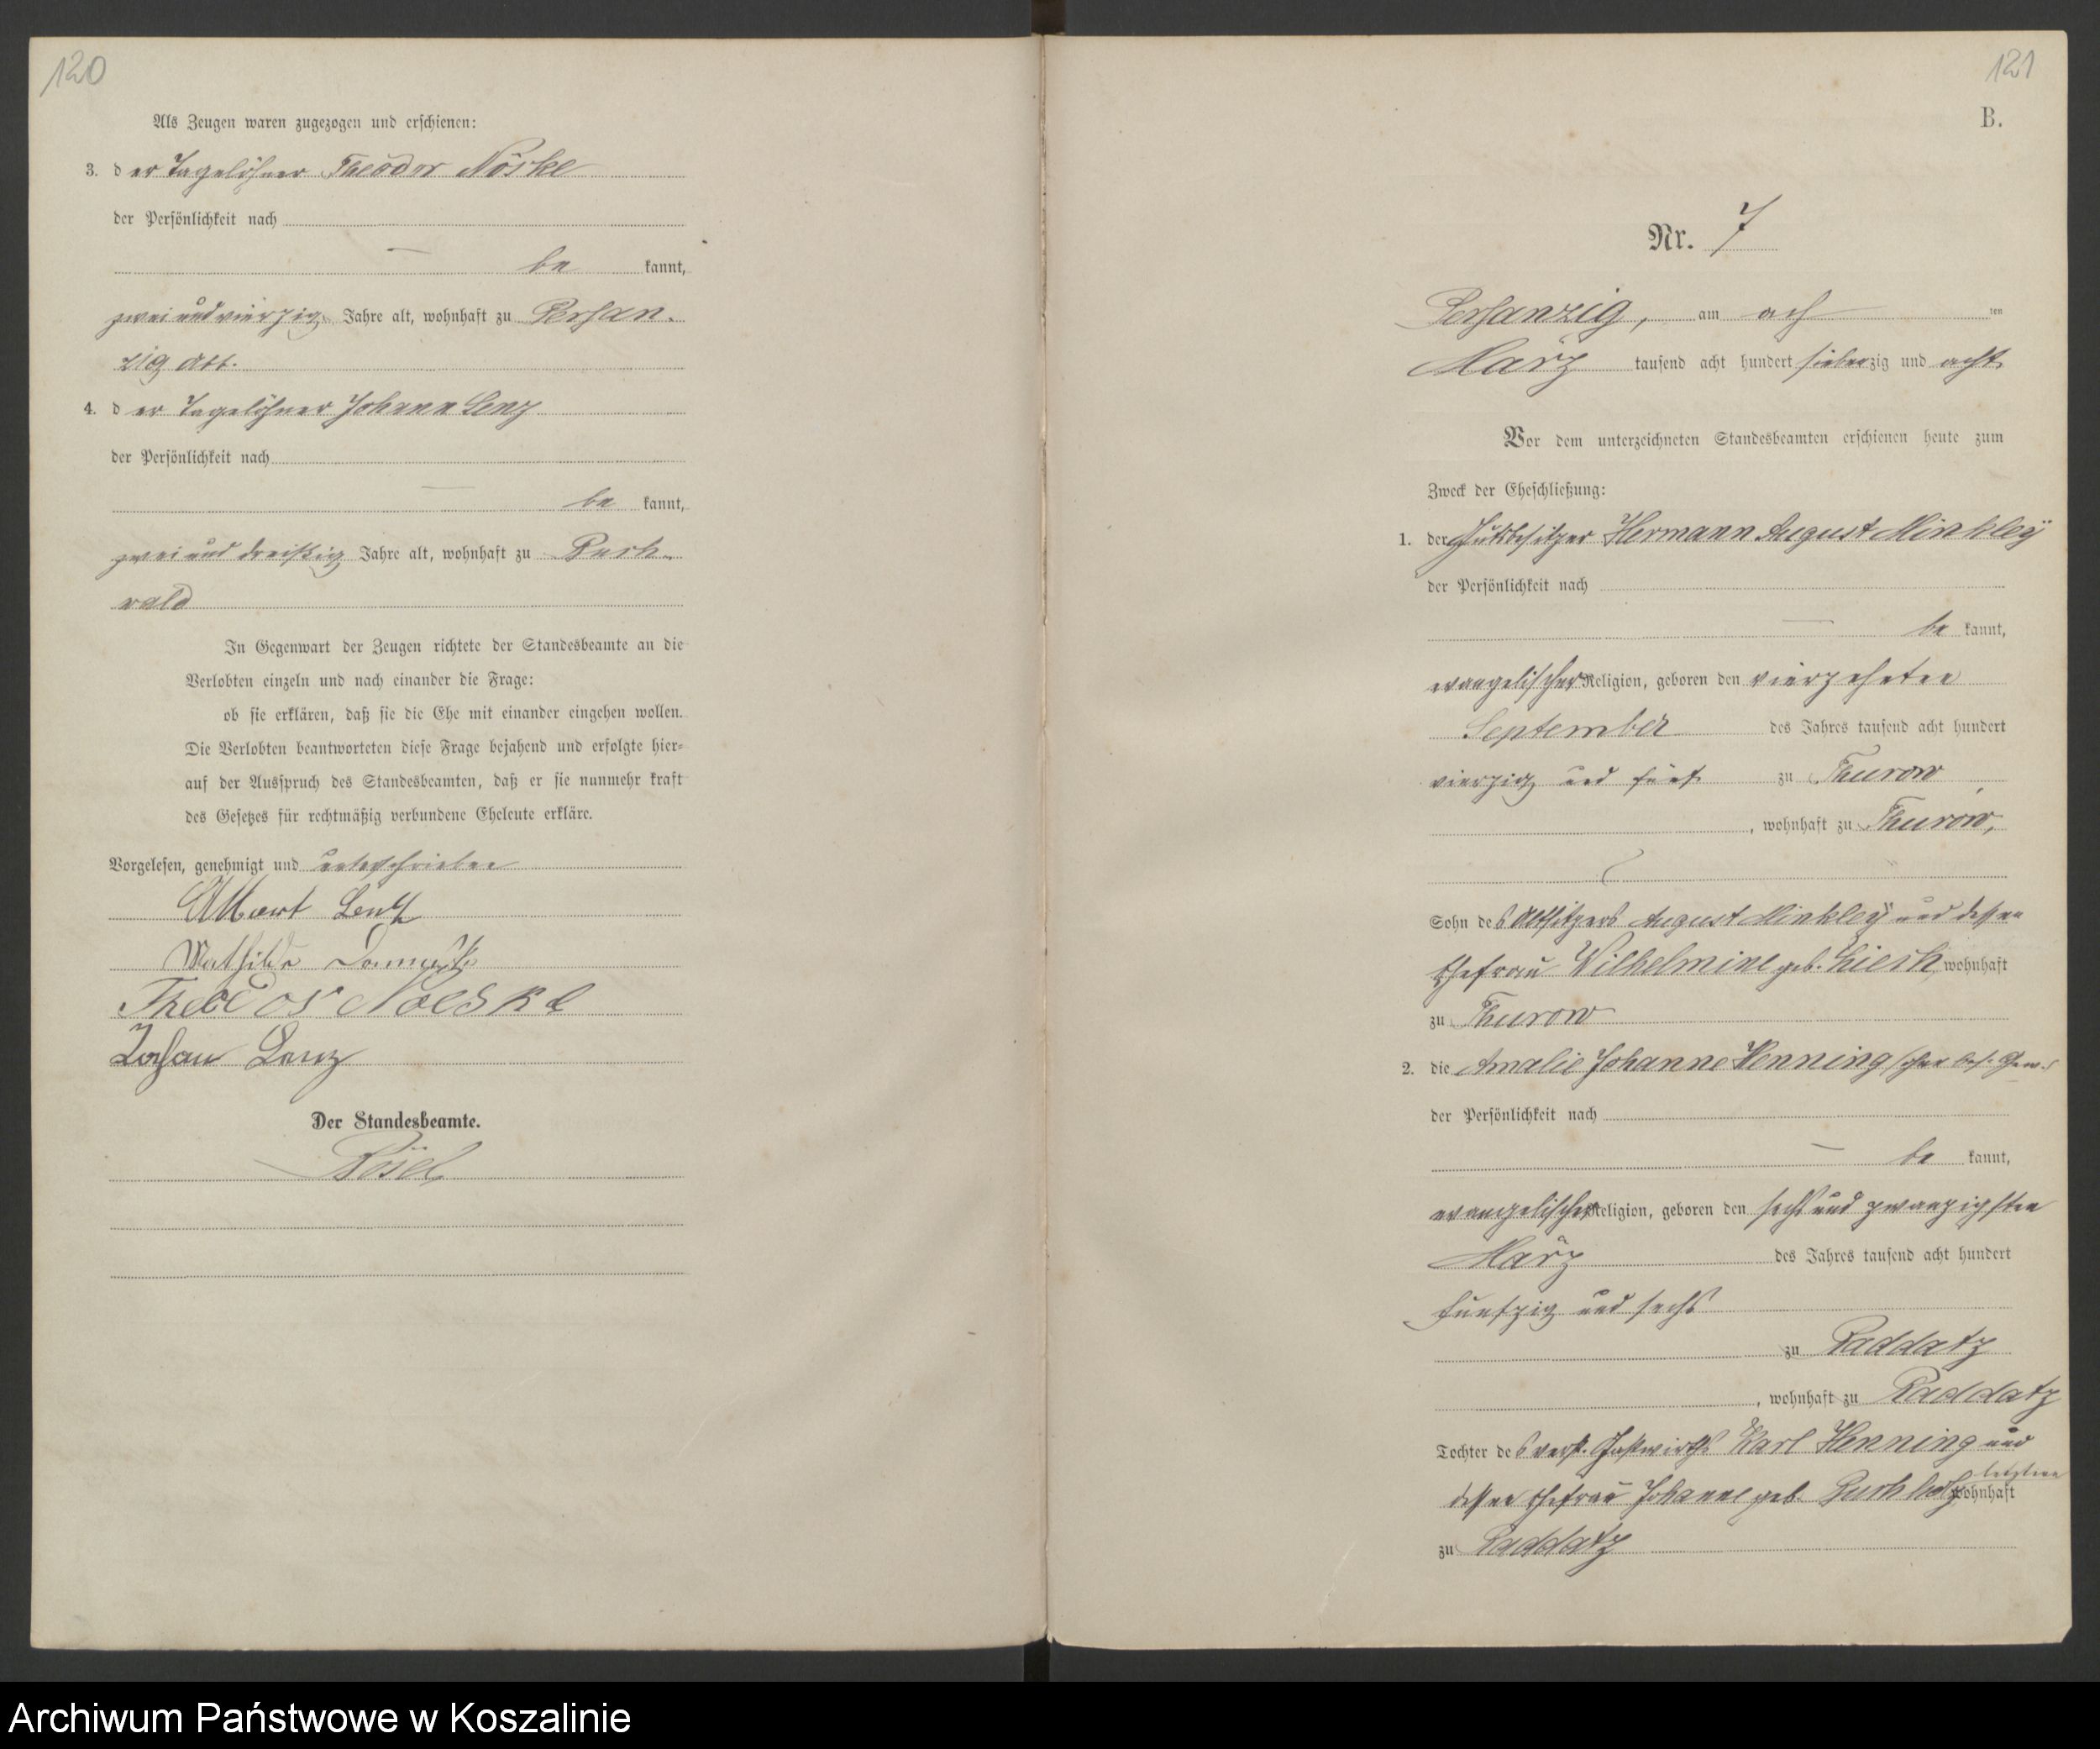 120
Als Zeugen waren zugezogen und erschienen:
3. der Tagelöhner Theodor Nöske
der Persönlichkeit nach
— be kannt,
zwei und vierzig Jahre alt, wohnhaft zu Persan-
zig
4. der Tagelöhner Johann Lenz
der Persönlichkeit nach
— be kannt,
zwei und dreißig Jahre alt, wohnhaft zu
wald
In Gegenwart der Zeugen richtete der Standesbeamte an die
Verlobten einzeln und nach einander die Frage:
ob sie erklären, daß sie die Ehe mit einander eingehen wollen.
Die Verlobten beantworteten diese Frage bejahend und erfolgte hier-
auf der Ausspruch des Standesbeamten, daß er sie nunmehr kraft
des Gesetzes für rechtmäßig verbundene Eheleute erkläre.
Vorgelesen, genehmigt und unterschrieben
Albert
Mathilde
Theodor Noeske
Johan Lenz
Der Standesbeamte.
121
B.
Nr. 7
Persanzig, am ach ten
März tausend acht hundert siebenzig und acht
Vor dem unterzeichneten Standesbeamten erschienen heute zum
Zweck der Eheschließung:
1. der Gutsbesitzer Hermann August Minkley
der Persönlichkeit nach
— be kannt,
evangelischer Religion, geboren den vierzehnten
September des Jahres tausend acht hundert
vierzig und fünf zu Thurow
, wohnhaft zu Thurow,
Sohn des Altsitzers August Minkley und dessen
Ehefrau Wilhelmine geb. wohnhaft
zu Thurow
2. die Amalie Johanne Henning
der Persönlichkeit nach
— be kannt,
evangelischer Religion, geboren den sechs und zwanzigsten
März des Jahres tausend acht hundert
fünfzig und sechs
zu Raddatz
, wohnhaft zu Raddatz
Tochter des verst. Gastwirths Karl Henning und
dessen Ehefrau Johanne geb. Buchholz letztere wohnhaft
zu Raddatz
Archiwum Państwowe w Koszalinie